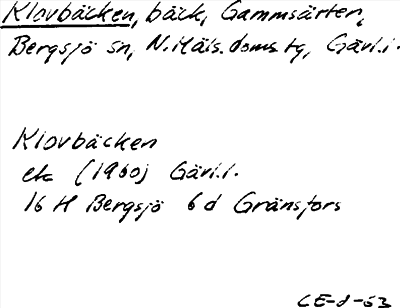 Klovbäcken, bäck, Gammsärten,
Bergsjö sn, N.Häls.doms.tg, Gävl.l.
Klovbäcken
ek (1960) Gävl.l.
16 H Bergsjö 6d Gränsfors
CE-d-63